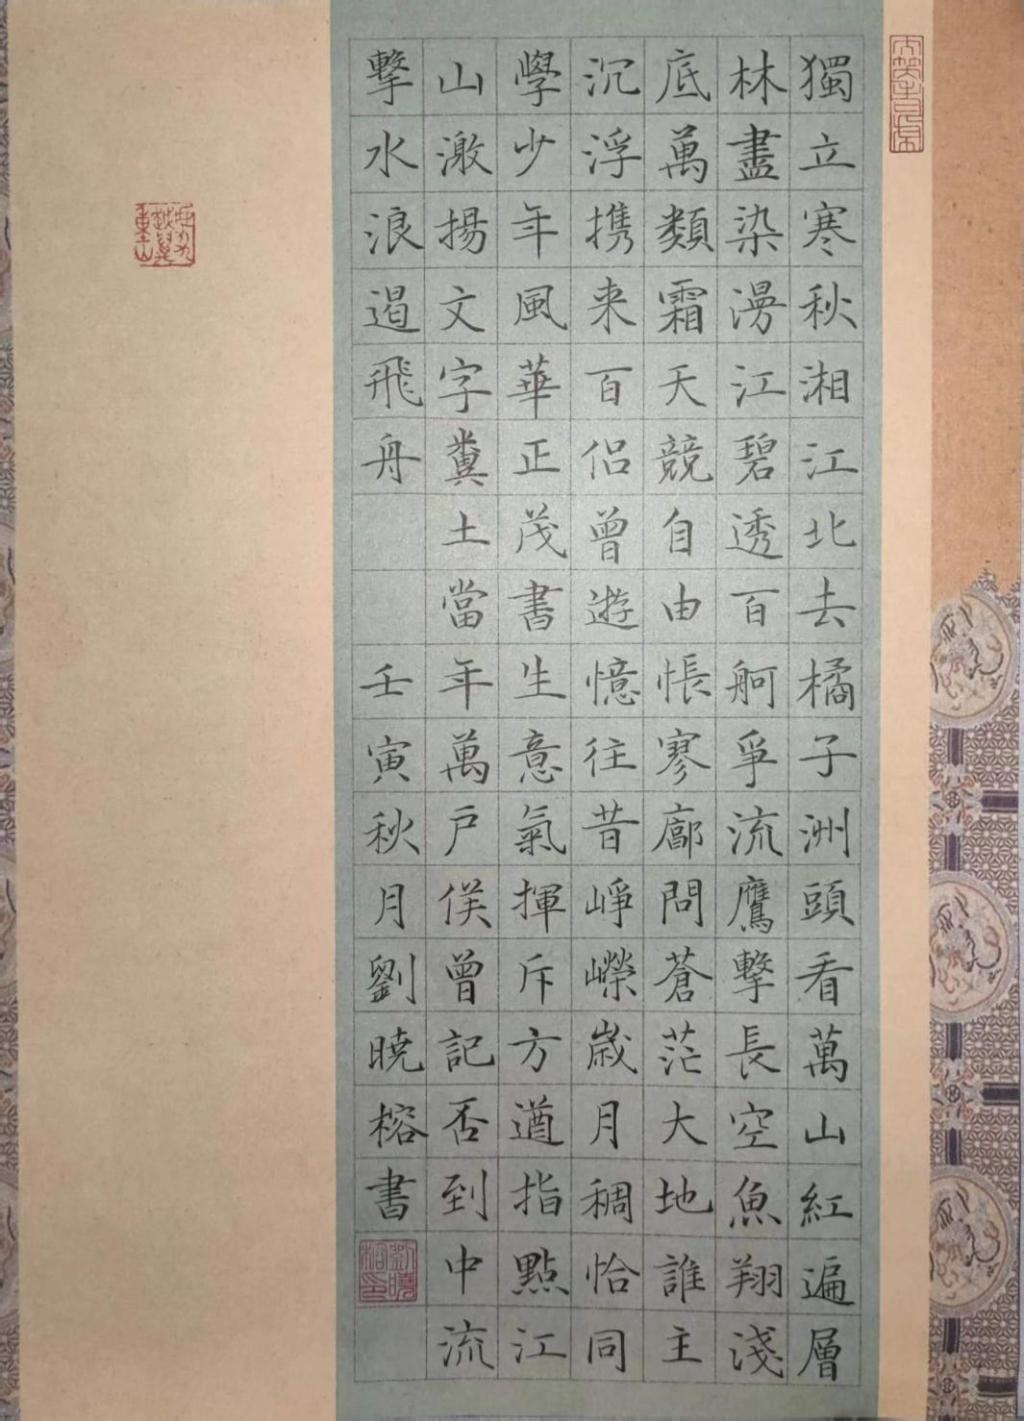 獨立寒秋湘江北去橘子洲頭看萬山紅遍層
林盡染漫江碧透百舸爭流鷹擊長空魚翔淺
底萬類霜天競自由悵寥廓問蒼茫大地誰主
沉浮携来百侣曾遊憶往昔崢嶸歲月稠恰同
學少年風華正茂書生意氣揮斥方遒指點江
山激揚文字糞土當年萬戶侯曾記否到中流
擊水浪遏飛舟
壬寅秋月劉曉榕書
劉曉榕印